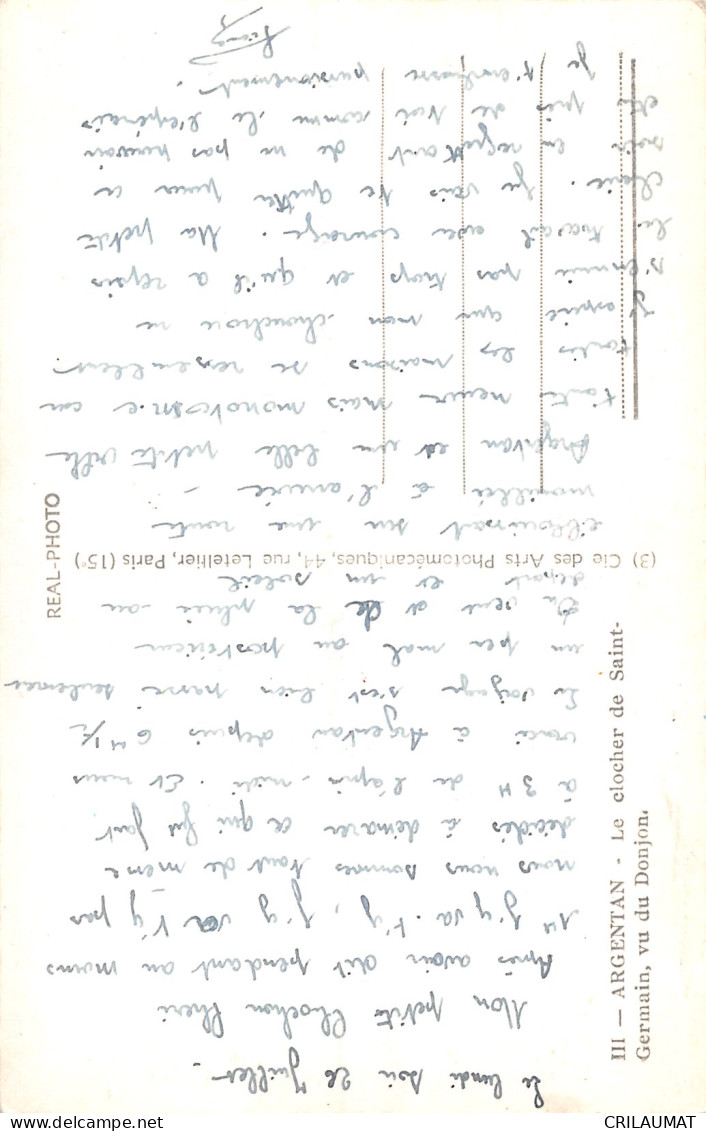 Le lundi soir 26 Juillet
Mon petit Chochon Chéri
Après avoir dit pendant au moins
1H J'y va. t'y, J'y va t'y pas
nous nous sommes tout de même
décidés à démarer ce qui fut fait
à 3H de l'après-midi. Et nous
voici à Argentan depuis 6H 1/2
Le voyage s'est bien passé seulement
un peu mal au postérieur
Du vent et de la pluie au
départ et un soleil
éblouissant sur une route
mouillée à l'arrivée -
Argentan est une belle petite ville
toute neuve mais monotone car
toutes les maisons se ressemblent
J'espère que mon chouchou ne
s'ennuie pas trop et qu'il a repris
le travail avec courage. Ma petite
chérie. Je vais te quitter pour ce
soir en regrettant de ne pas pouvoir
être près de toi comme je l'espérais
Je t'embrasse passionnément.
III — ARGENTAN - Le clocher de Saint-
Germain, vu du Donjon.
REAL-PHOTO
(3) Cie des Arts Photomécaniques, 44, rue Letellier, Paris (15e)
CRILAUMAT